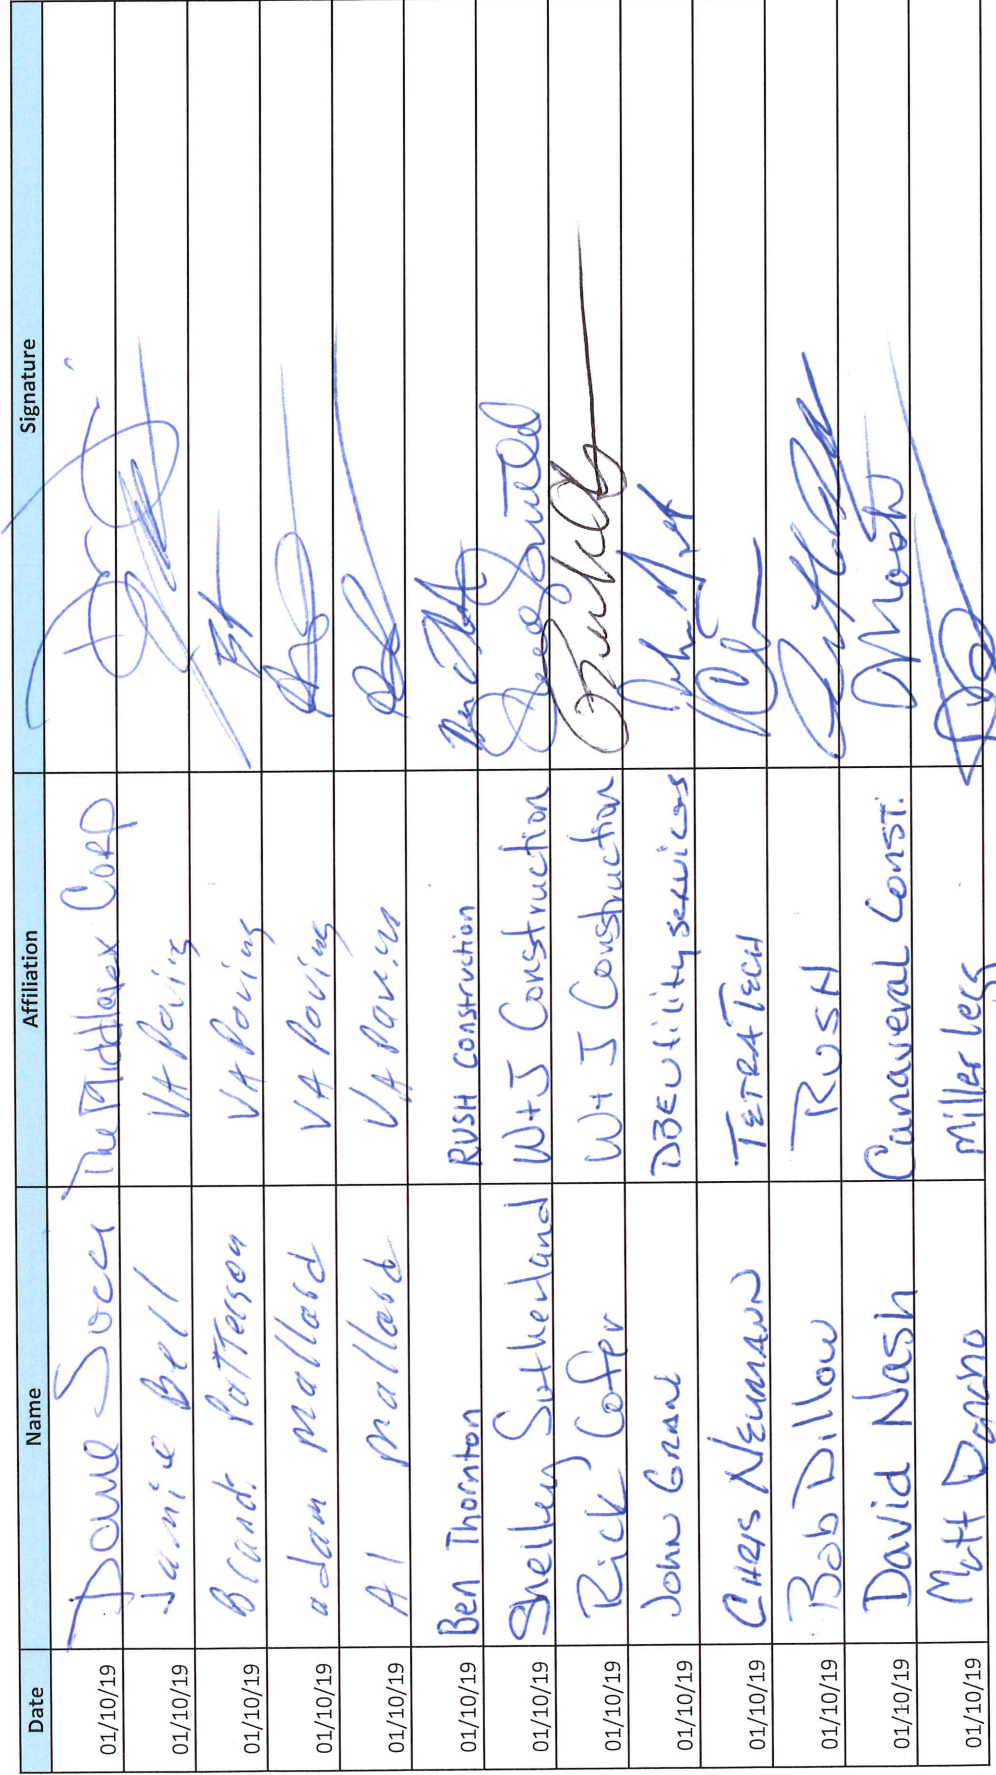 Date Name Affiliation Signature
01/10/19 Dane Socci The Middlesex Corp
01/10/19 Jamie Bell VA Paving
01/10/19 Brandi Patterson VA Paving
01/10/19 adam mallard VA Paving
01/10/19 Al mallard VA Paving
01/10/19 Ben Thornton RUSH Construction
01/10/19 Shelley Sutherland W+J Construction
01/10/19 Rick Cofer W+J Construction
01/10/19 John Grant DBE Utility Services
01/10/19 CHRIS NEUMANN TETRA TECH
01/10/19 Bob Dillow RUSH
01/10/19 David Nash Canaveral Const.
01/10/19 Matt Miller Legg